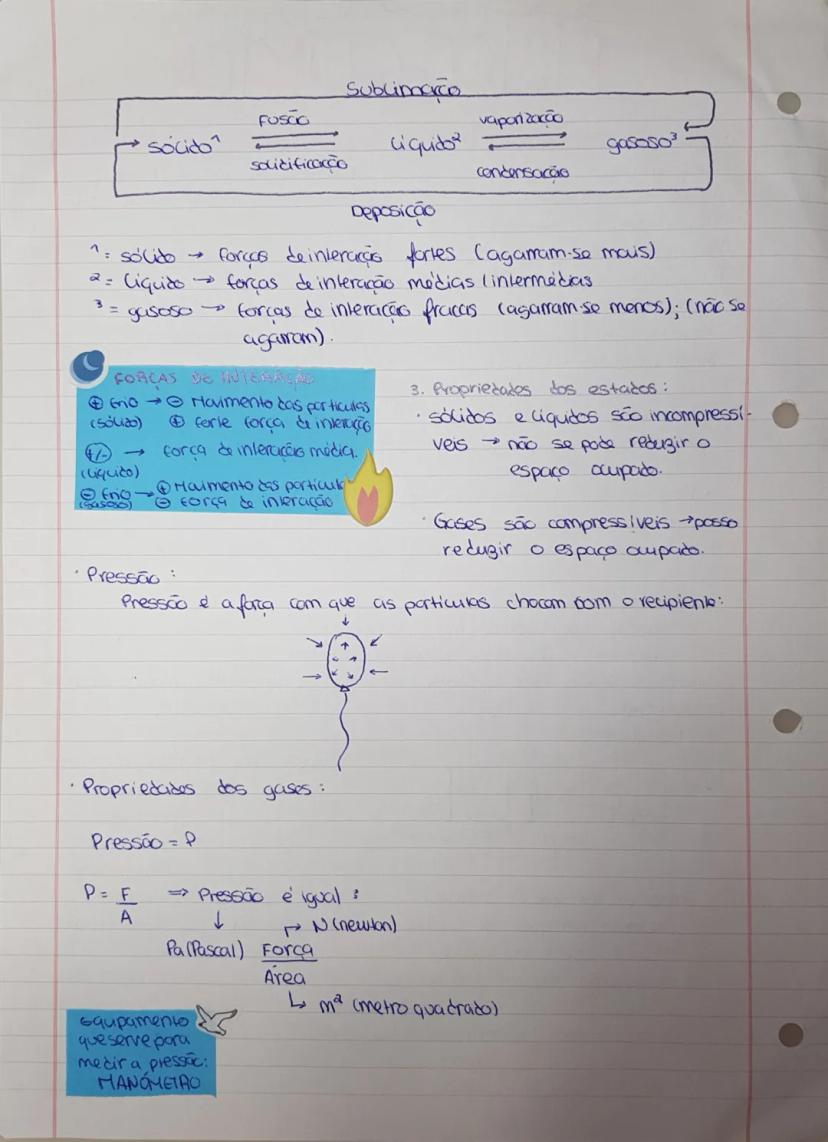 Sublimação
Fusão vaporização
sólido¹ líquido² gasoso³
solidificação condensação
Deposição
¹ = sólido → forças de interação fortes (agarram-se mais)
² = líquido → forças de interação médias / intermédias
³ = gasoso → forças de interação fracas (agarram-se menos); (não se
agarram).
FORÇAS DE INTERAÇÃO
⊕ frio → ⊖ Movimento das partículas
(sólido) ⊕ forte força de interação
(+/-) → força de interação média.
(líquido)
⊖ frio → ⊕ Movimento das partículas
(gasoso) ⊖ força de interação
3. Propriedades dos estados:
· sólidos e líquidos são incompressí-
veis → não se pode reduzir o
espaço ocupado.
· Gases são compressíveis → posso
reduzir o espaço ocupado.
· Pressão:
Pressão é a força com que as partículas chocam com o recipiente:
· Propriedades dos gases:
Pressão = P
P = F/A ⇒ Pressão é igual:
N (newton)
Pa (Pascal) Força
Área
m² (metro quadrado)
Equipamento
que serve para
medir a pressão:
MANÓMETRO